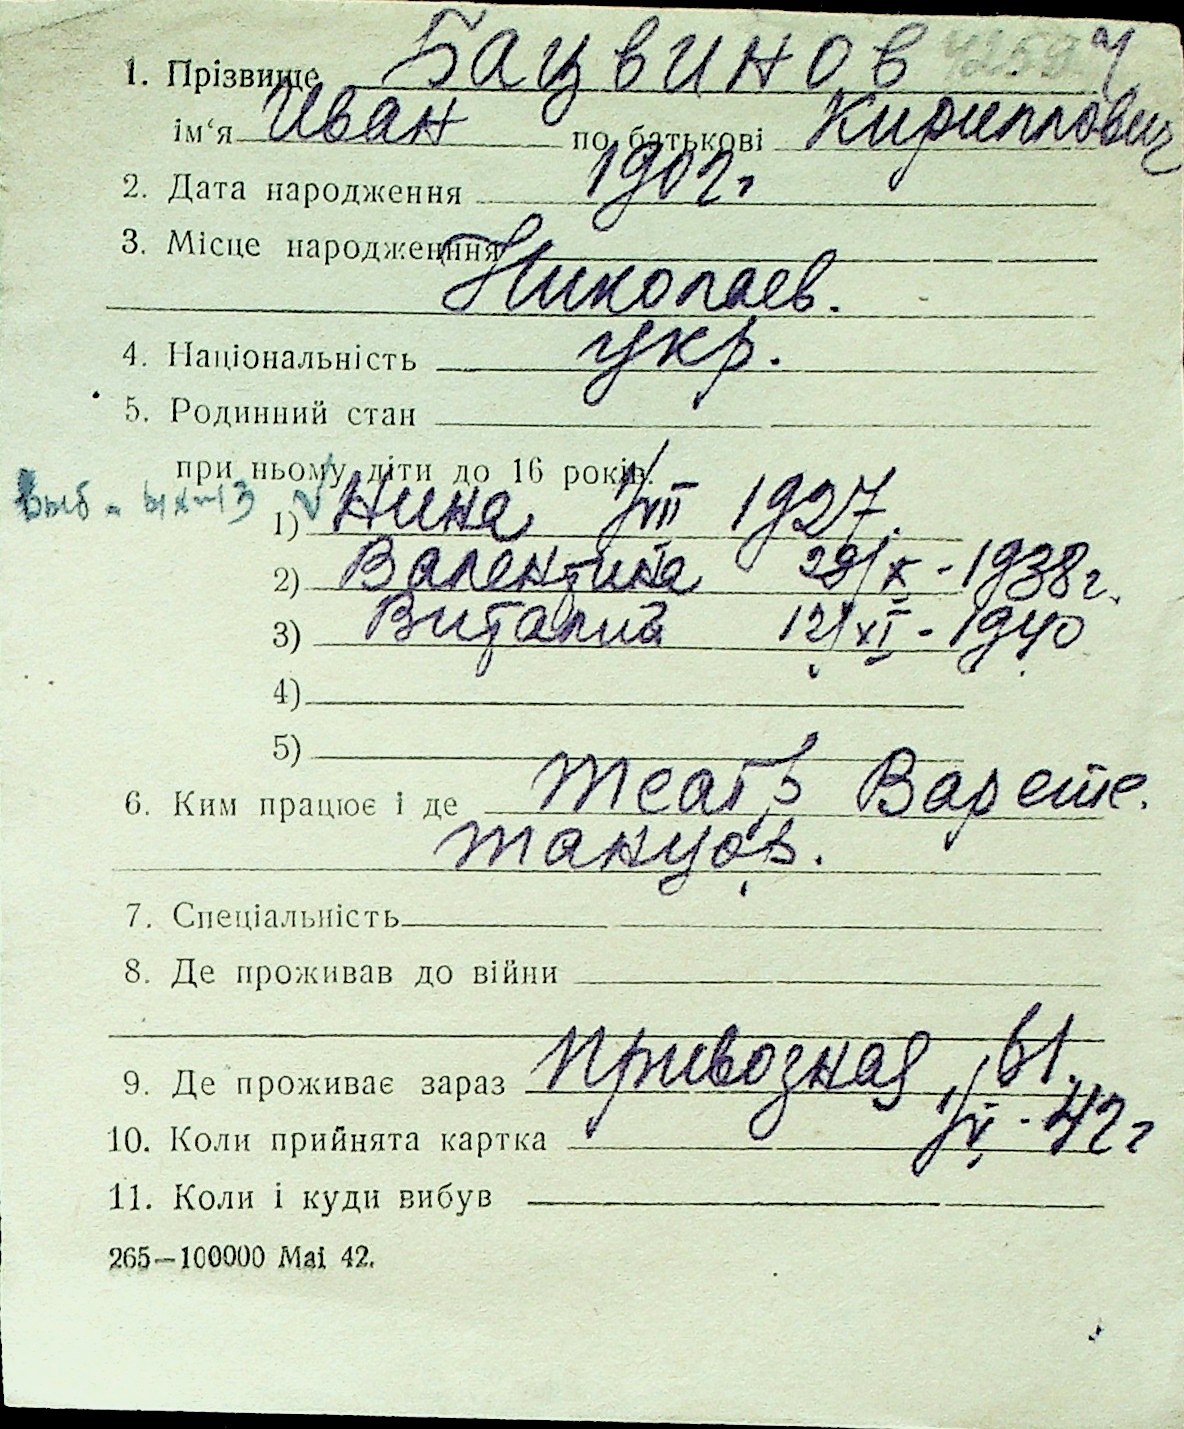 1. Прізвище Бацвинов
ім‘я Иван по батькові Кириллович
2. Дата народження 1902г
3. Місце народженння
Николаев.
4. Національність укр.
5. Родинний стан
при ньому діти до 16 років.
1) Нина 1/VII 1927.
2) Валентина 29/X - 1938г.
3) Виталий 12/XI - 1940
4)
5)
6. Ким працює і де Театр Варете.
танцор.
7. Спеціальність
8. Де проживав до війни
9. Де проживає зараз Привозная, 61.
10. Коли прийнята картка 1/V - 42г
11. Коли і куди вибув
265—100000 Mai 42.